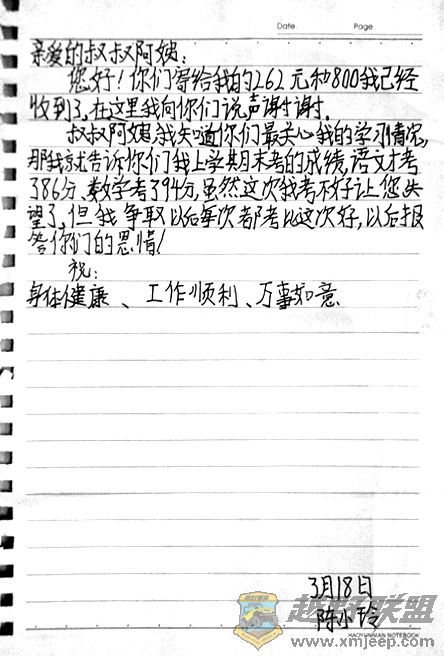 Date Page
亲爱的叔叔阿姨:
您好!你们寄给我的262元和800我已经
收到了,在这里我向你们说声谢谢.
叔叔阿姨,我知道你们最关心我的学习情况,
那我就告诉你们我上学期末考的成绩,语文才考
了86分、数学考了94分,虽然这次我考不好让您失
望了,但我争取以后每次都考比这次好,以后报
答你们的恩情!
祝:
身体健康、工作顺利、万事如意.
3月18日
陈小玲
HAOYUNNIAN NOTEBOOK
越野联盟
www.xmjeep.com